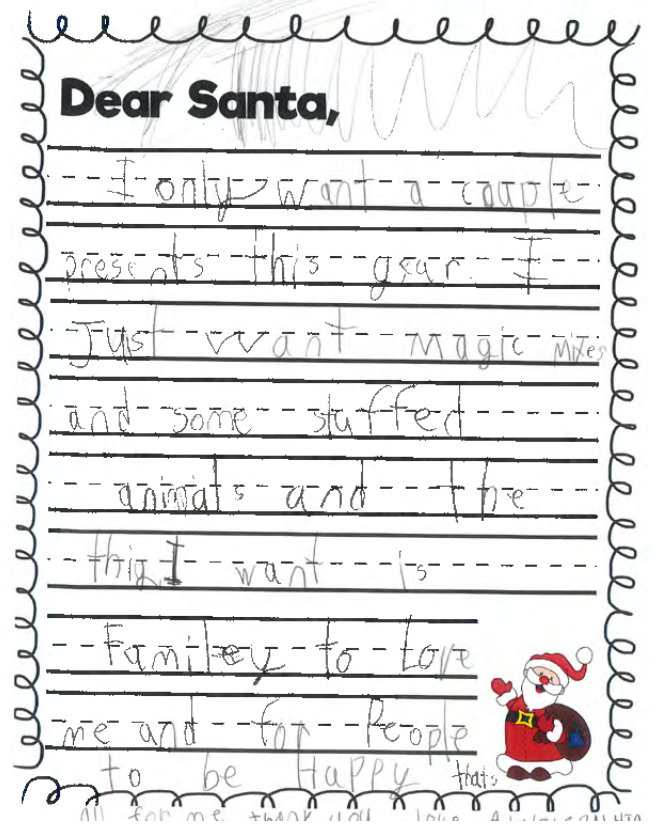 Dear Santa,
I only want a couple
presents this year. I
Just want Magic Mixes
and some stuffed
animals and the
thig I want is
Familey to Love
me and for People
to be Happy thats
All for me thank you Love